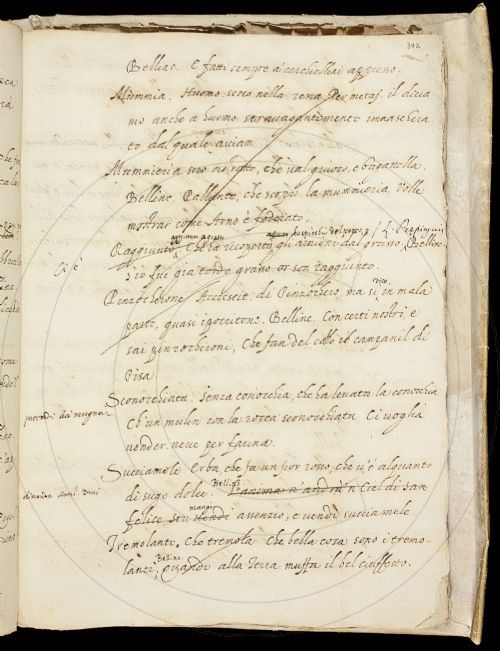 302
Belline. E fatti sempre a cerchellini appieno.
Mummia. Huomo secco nella rena. Per metaf. il dicia
mo anche a huomo stravagantemente immaschera
to, dal quale aviam
Mummieria suo astratto, che val giuoco, e bagattella.
Belline. Pallante, che scoprì la mummieria Volle
mostrar come Arno è foderato.
Raggiunto. Che ha ricoperto gli arnioni dal grasso, Belline
S'io fui già tondo grasso or son raggiunto.
Pinzochessone. Accrescit. di Pinzochero, ma si dice in mala
parte, quasi ipocritone. Belline. Con certi nostri, e
sai pinzochcioni, Che fan del collo il campanil di
Pisa
Sconocchiata. Senza conocchia, che ha levata la conocchia
Ch'un mulin con la rocca sconocchiata Ci voglia
vender neve per farina.
Succiamele Erba che fa un fior rosso, che v'è alquanto
di sugo dolce. Belline L'anima n'andrà 'n Ciel di San
felice, stu mangi assenzio, e vendi succia mele
Tremolante, Che tremola Che bella cosa sono i tremo-
lanti Belline, alla Terra muffa il bel ciuffetto.